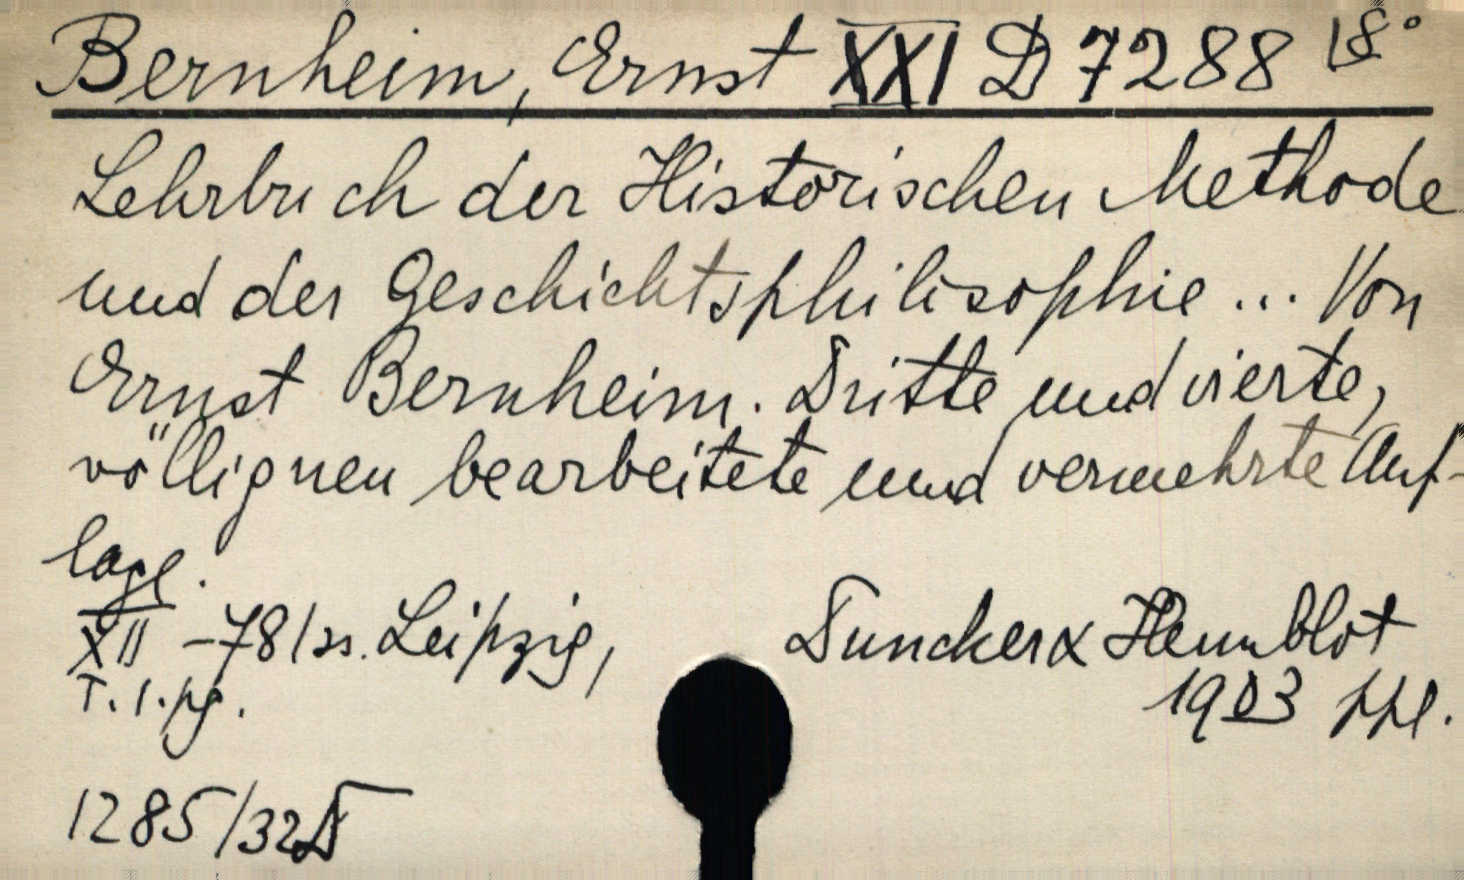 Bernheim, Ernst XXI D 7288 18°
Lehrbuch der Historischen Methode
und der Geschichtsphilosophie... Von
Ernst Bernheim. Dritte und vierte,
völlig neu bearbeitete und vermehrte Auf-
lage.
XII - 781 ss. Leipzig, Duncker & Humblot
T. 1. pg. 1903 ppl.
1285/32 D